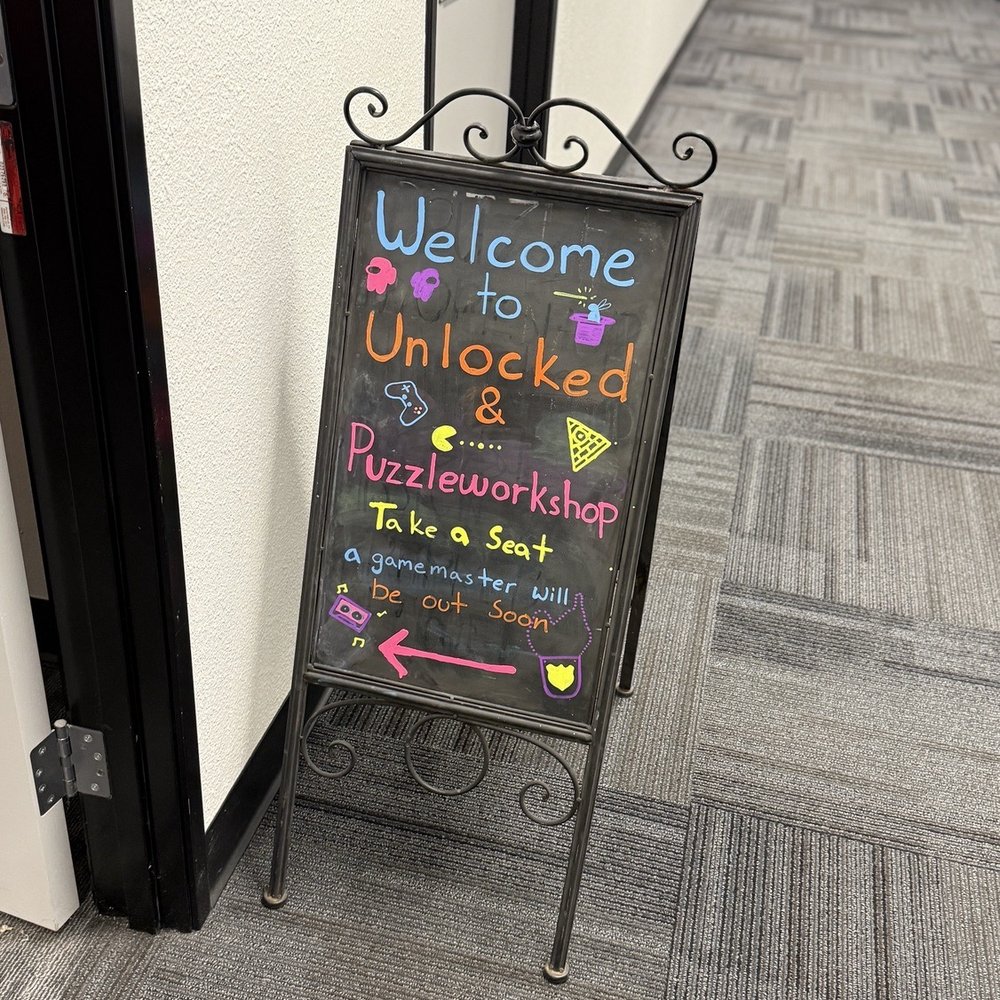 Welcome
to
Unlocked
&
Puzzleworkshop
Take a Seat
a gamemaster will
be out soon